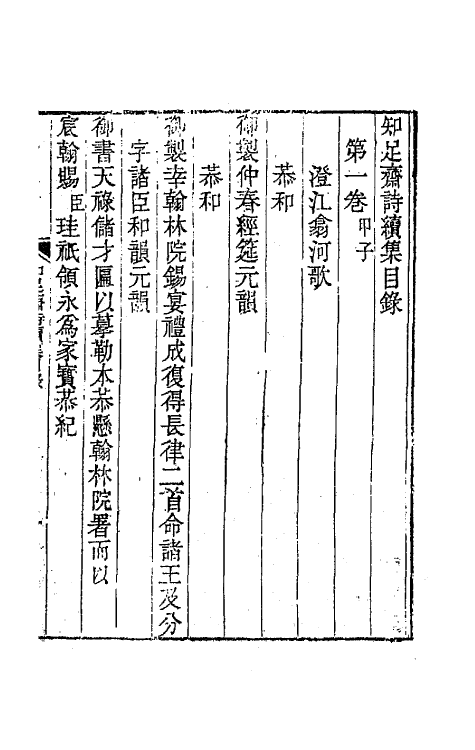 知足齋詩續集目錄
第一卷甲子
澄江翕河歌
恭和
御製仲春經筵元韻
恭和
御製幸翰林院錫宴禮成復得長律二首命諸王及分
字諸臣和韻元韻
御書天祿儲才匾以摹勒本恭懸翰林院署而以
宸翰賜臣珪祇領永爲家寶恭紀